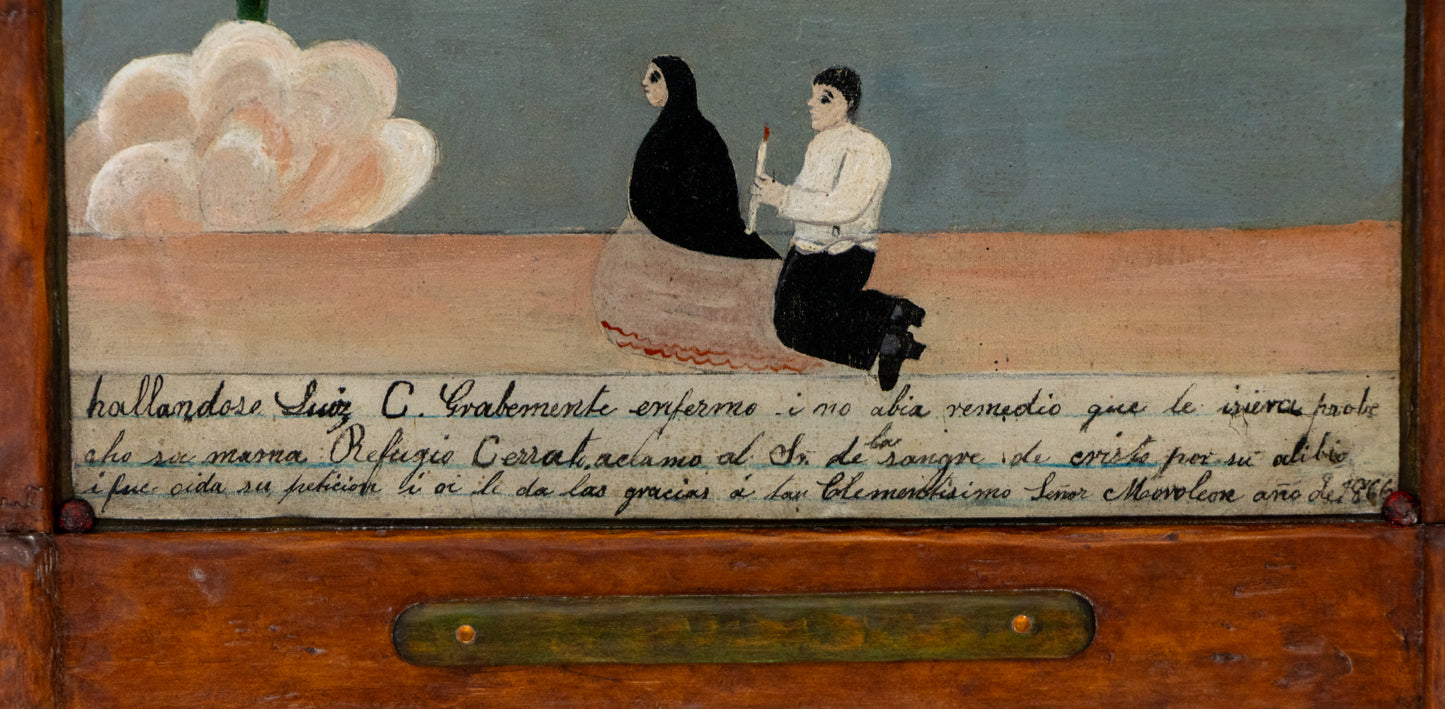 hallandose Luiz C. Grabemente enfermo i no abia remedio que le isiera probe
cho su mama Refugio Cerrato, aclamo al Sr. de la sangre de cristo por su alibio
i fue oida su peticion i oi le da las gracias á tan Clementisimo Señor Moroleon año de 1866